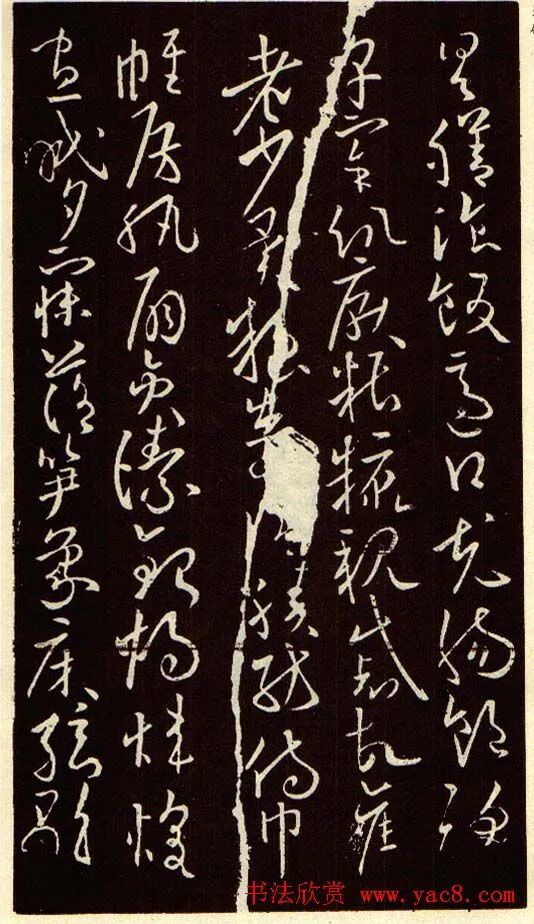 具膳飡飯適口充腸飽飫
烹宰飢厭糟糠親戚故舊
老少異糧妾績紡侍巾
帷房紈扇圓潔銀燭煒煌
晝眠夕寐藍笋象床弦歌
书法欣赏 www.yac8.com